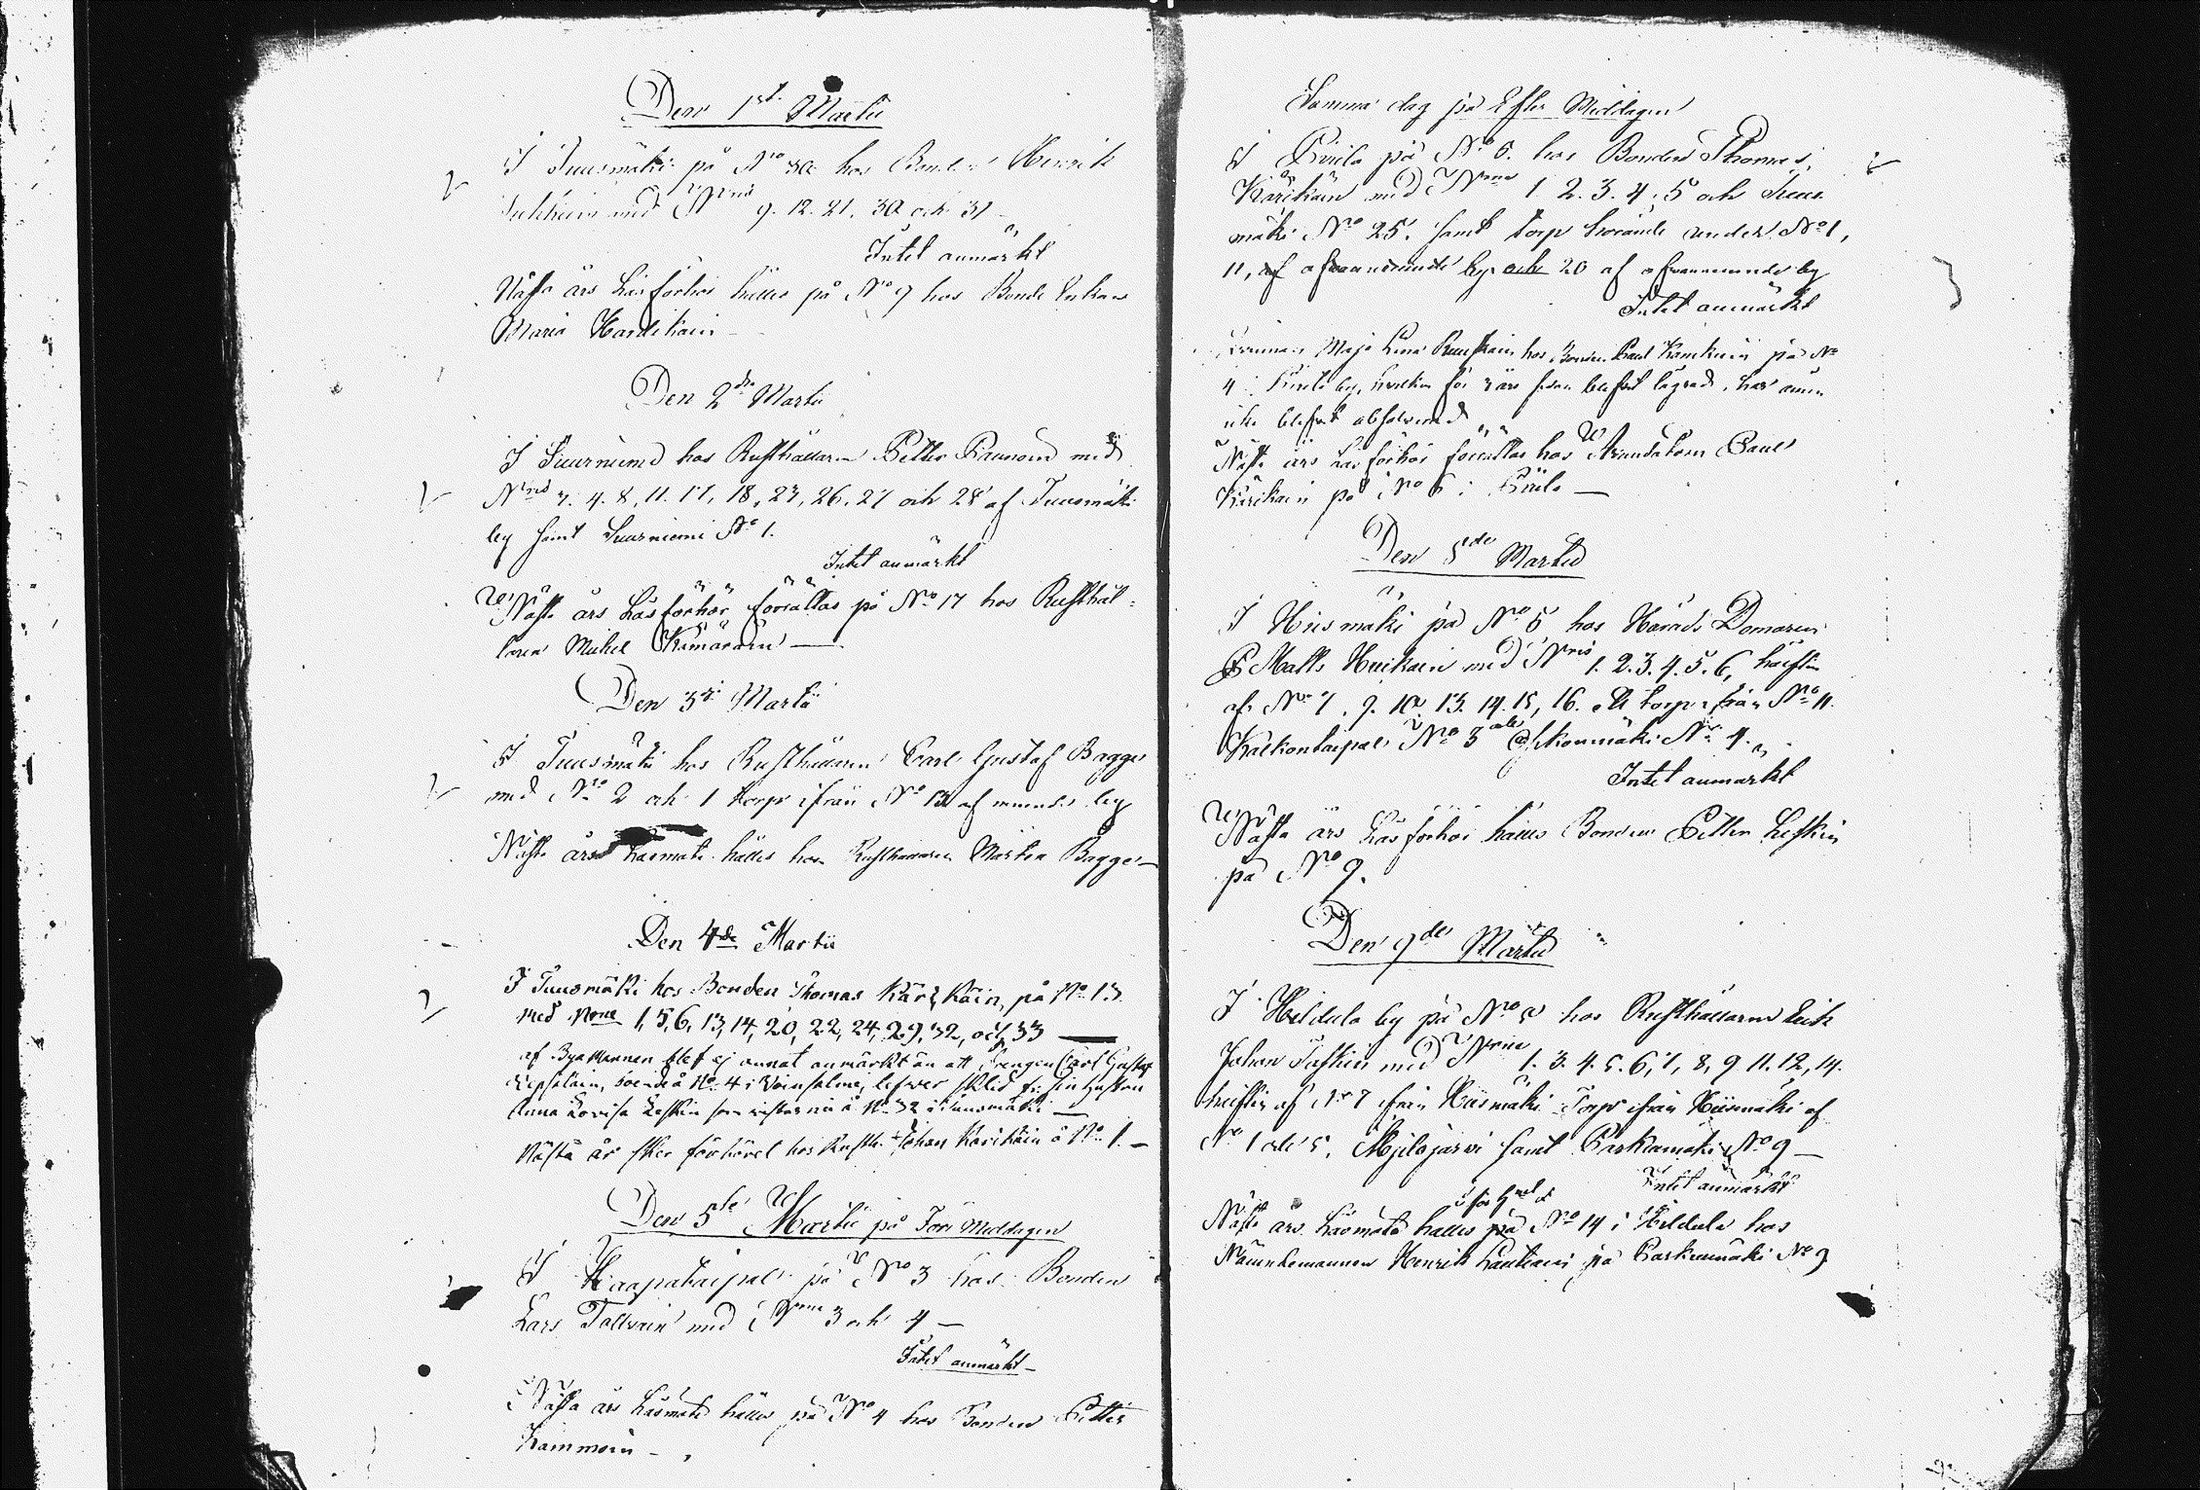 Den 1st. Martii
I Tuusmäki på No 30 hos Bonden Henrik
med Nris 9. 12. 21. 30 och 31
Intet anmärkt
Nästa års Läsförhör hålles på No 9 hos Bonde Enkan
Maria Hardikain
Den 2dra Martii
I Suurniemi hos Rusthållaren Petter Paunoin med
Nris 3. 4. 8, 11. 17, 18, 23, 26. 27 och 28 af Tuusmäki
by samt Suurniemi No 1.
Intet anmärkt
Nästa års Läsförhör förrättas på No 17 hos Rusthål-
laren Mikel Kämäräin —
Den 3die Martii
I Tuusmäki hos Rusthållaren Carl Gustaf Bagge
med No 2 och 1 torp ifrån No 13 af by
Nästa års Läsmöte hålles hos Rusthållaren Mårten Bagge —
Den 4de Martii
I Tuusmäki hos Bonden Thomas Kärikäin, på No 13
med Nrone 1, 5, 6, 13, 14, 20, 22, 24, 29, 32, och 33 —
af Byamännen blef ej annat anmärkt än att Drengen Carl Gustaf
boende å No 4 i lefver skild fr: sin hustru
Anna Lovisa Leskin som vistas nu å No 32 i Tuusmäki —
Nästa år sker förhöret hos Rusth. Johan Karikäin å No 1. —
Den 5te Martii på För Middagen
I Haapataipal på No 3 hos Bonden
Lars Tallvain med Nrone 3 och 4 —
Intet anmärkt —
Nästa års Läsmöte hålles på No 4 hos Bonden Petter
Kammoin —
Samma dag på Efter Middagen
I på No 6. hos Bonden Thomas
Kärikäin med Nrone 1 2. 3. 4. 5 och Tuus
mäki No 25. samt torp under No 1,
11, af by och 20 af by
Intet anmärkt
Maja Lena hos Bonden Paul på No
4 i by, för 3 år sedan blifvit lägrad, har ännu
icke blifvit absolverad
Nästa års Läsförhör förrättas hos Paul
Kärikäin på No 5 i —
Den 8de Martii
I Hiismäki på No 5 hos Härads Domaren
P Matts Huikain med Nris 1. 2. 3. 4. 5. 6, hälften
af No 7. 9. 10 13. 14. 15, 16. ett torp från No 11.
Kalkontaipal No 3 och No 4.
Intet anmärkt
Nästa års Läsförhör hålles Bonden Petter Leskin
på No 9.
Den 9de Martii
I Heldula by på No 5 hos Rusthållaren Erik
Johan Taskin med Nrone 1. 3. 4. 5. 6, 7, 8, 9 11. 12, 14.
hälften af No 7 ifrån Hiismäki Torp ifrån Hiismäki af
No 1 och 5. Myllyjärvi samt Parkumäki No 9 —
Intet anmärkt
Nästa års Läsmöte hålles på No 14 i Heldula hos
Nämndemannen Henrik Lautiain på Parkumäki No 9